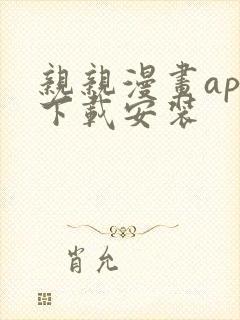 親親漫畫ap
下載安裝
肖允